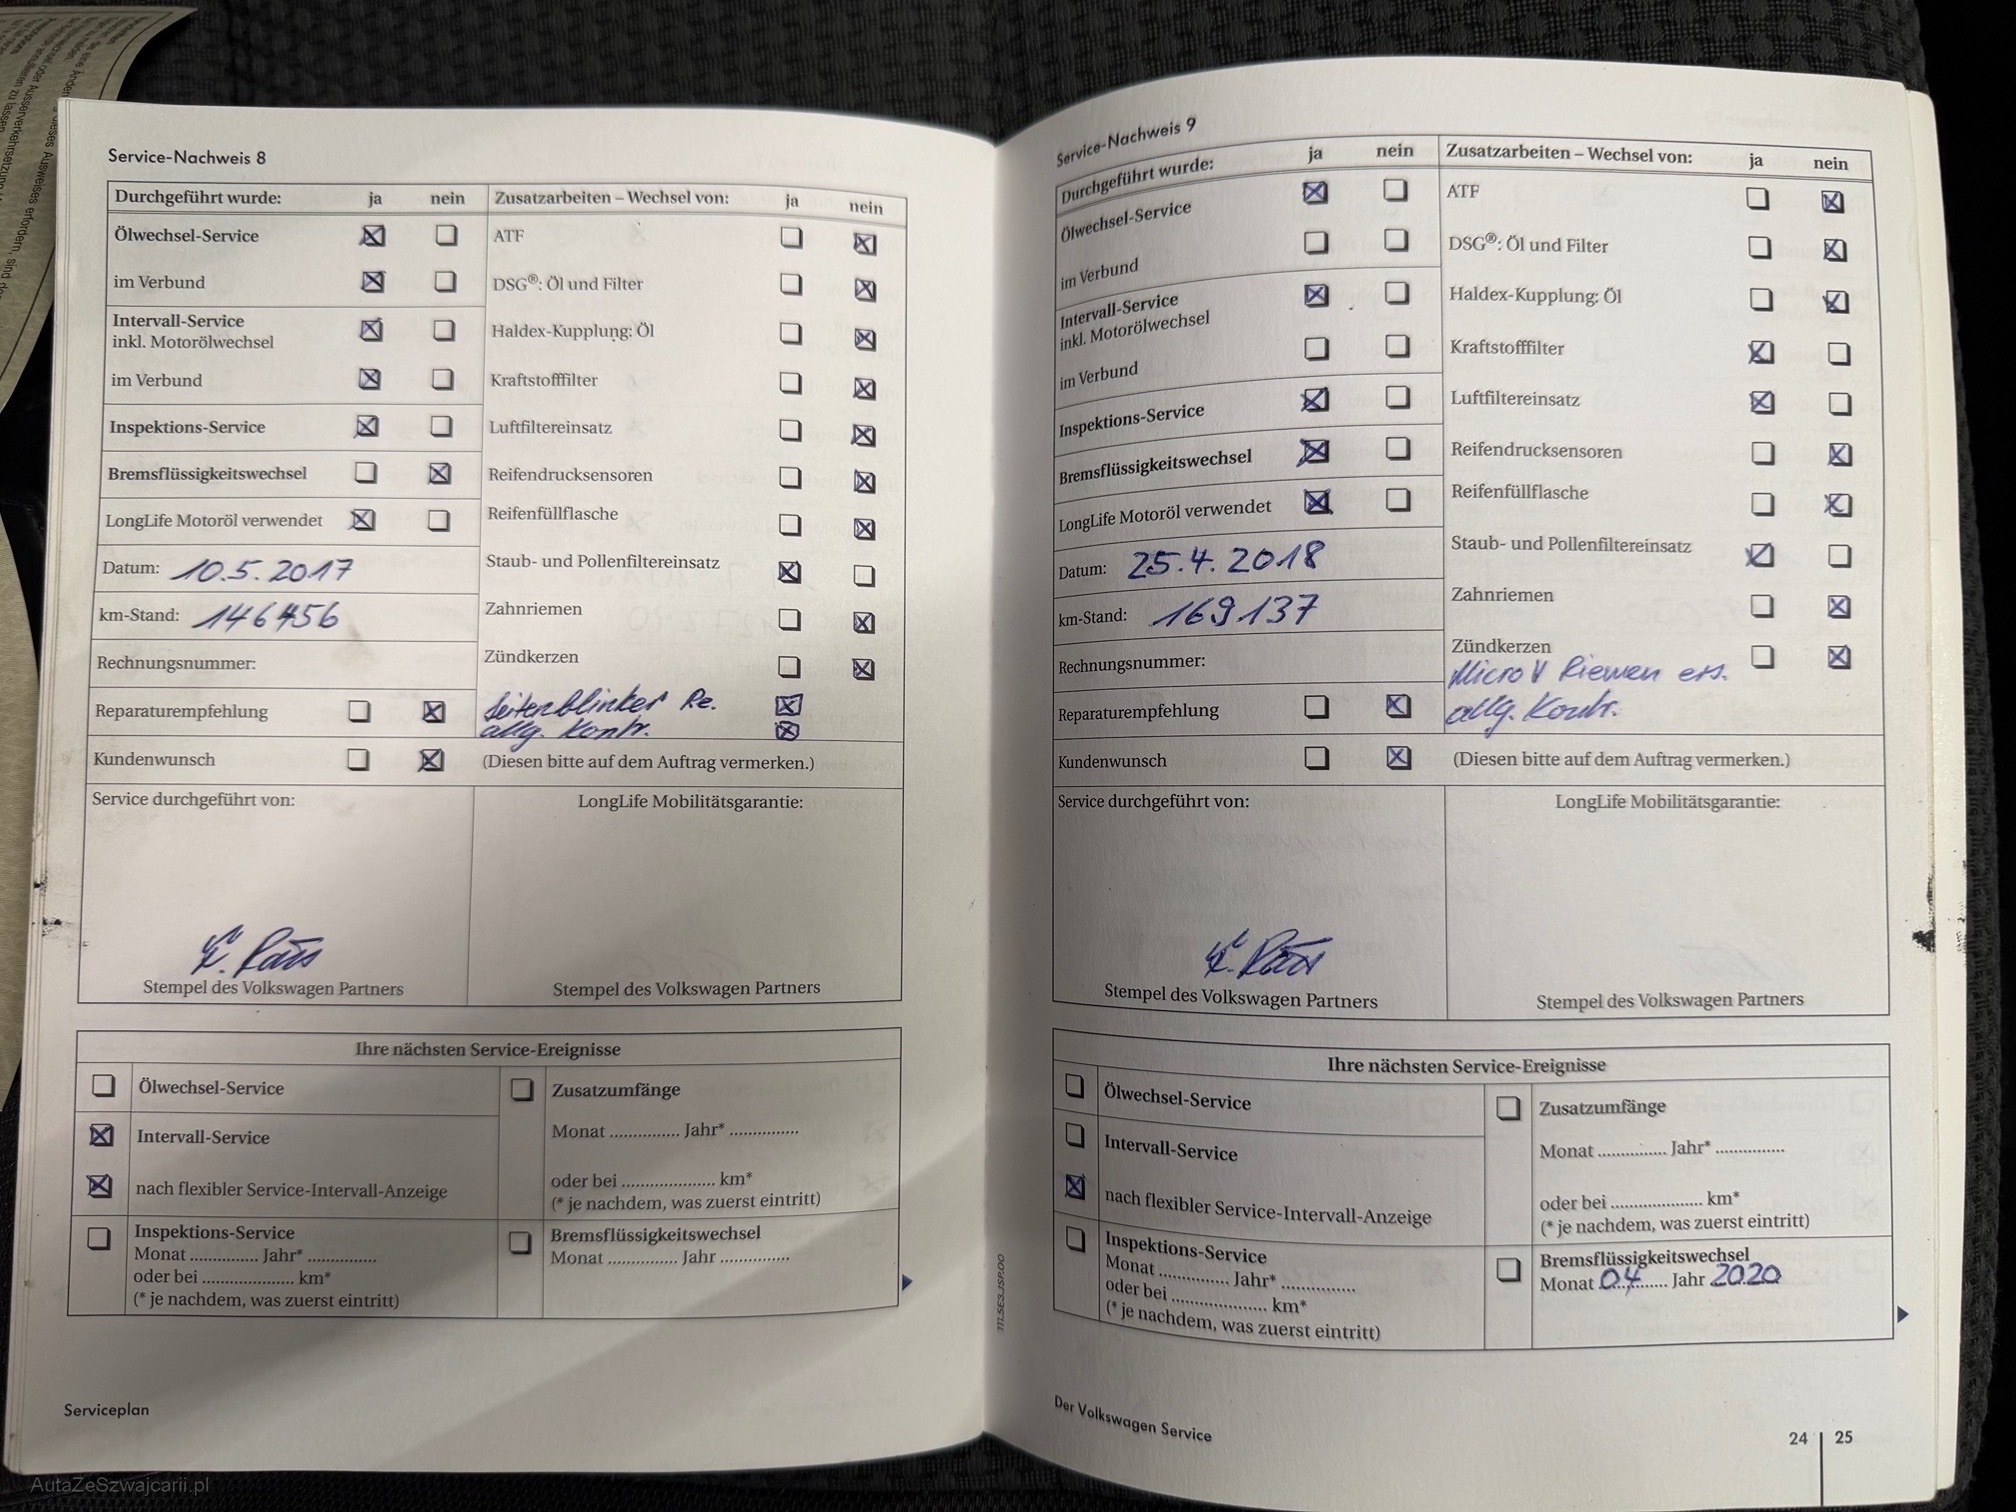 Service-Nachweis 8
Durchgeführt wurde: ja nein
Ölwechsel-Service
im Verbund
Intervall-Service
inkl. Motorölwechsel
im Verbund
Inspektions-Service
Bremsflüssigkeitswechsel
LongLife Motoröl verwendet
Datum: 10.5.2017
km-Stand: 146456
Rechnungsnummer:
Reparaturempfehlung
Kundenwunsch
Zusatzarbeiten – Wechsel von: ja nein
ATF
DSG®: Öl und Filter
Haldex-Kupplung: Öl
Kraftstofffilter
Luftfiltereinsatz
Reifendrucksensoren
Reifenfüllflasche
Staub- und Pollenfiltereinsatz
Zahnriemen
Zündkerzen
Seitenblinker Re.
allg. Kontr.
(Diesen bitte auf dem Auftrag vermerken.)
Service durchgeführt von:
Stempel des Volkswagen Partners
LongLife Mobilitätsgarantie:
Stempel des Volkswagen Partners
Ihre nächsten Service-Ereignisse
Ölwechsel-Service
Intervall-Service
nach flexibler Service-Intervall-Anzeige
Inspektions-Service
Monat .............. Jahr* ..............
oder bei ................... km*
(* je nachdem, was zuerst eintritt)
Zusatzumfänge
Monat .............. Jahr* ..............
oder bei ................... km*
(* je nachdem, was zuerst eintritt)
Bremsflüssigkeitswechsel
Monat .............. Jahr ..............
Serviceplan
111.5E3.JSP.00
Service-Nachweis 9
Durchgeführt wurde: ja nein
Ölwechsel-Service
im Verbund
Intervall-Service
inkl. Motorölwechsel
im Verbund
Inspektions-Service
Bremsflüssigkeitswechsel
LongLife Motoröl verwendet
Datum: 25.4.2018
km-Stand: 169137
Rechnungsnummer:
Reparaturempfehlung
Kundenwunsch
Zusatzarbeiten – Wechsel von: ja nein
ATF
DSG®: Öl und Filter
Haldex-Kupplung: Öl
Kraftstofffilter
Luftfiltereinsatz
Reifendrucksensoren
Reifenfüllflasche
Staub- und Pollenfiltereinsatz
Zahnriemen
Zündkerzen
Micro V Riemen ers.
allg. Kontr.
(Diesen bitte auf dem Auftrag vermerken.)
Service durchgeführt von:
Stempel des Volkswagen Partners
LongLife Mobilitätsgarantie:
Stempel des Volkswagen Partners
Ihre nächsten Service-Ereignisse
Ölwechsel-Service
Intervall-Service
nach flexibler Service-Intervall-Anzeige
Inspektions-Service
Monat .............. Jahr* ..............
oder bei ................... km*
(* je nachdem, was zuerst eintritt)
Zusatzumfänge
Monat .............. Jahr* ..............
oder bei ................... km*
(* je nachdem, was zuerst eintritt)
Bremsflüssigkeitswechsel
Monat 04 Jahr 2020
Der Volkswagen Service
24 25
AutaZeSzwajcarii.pl